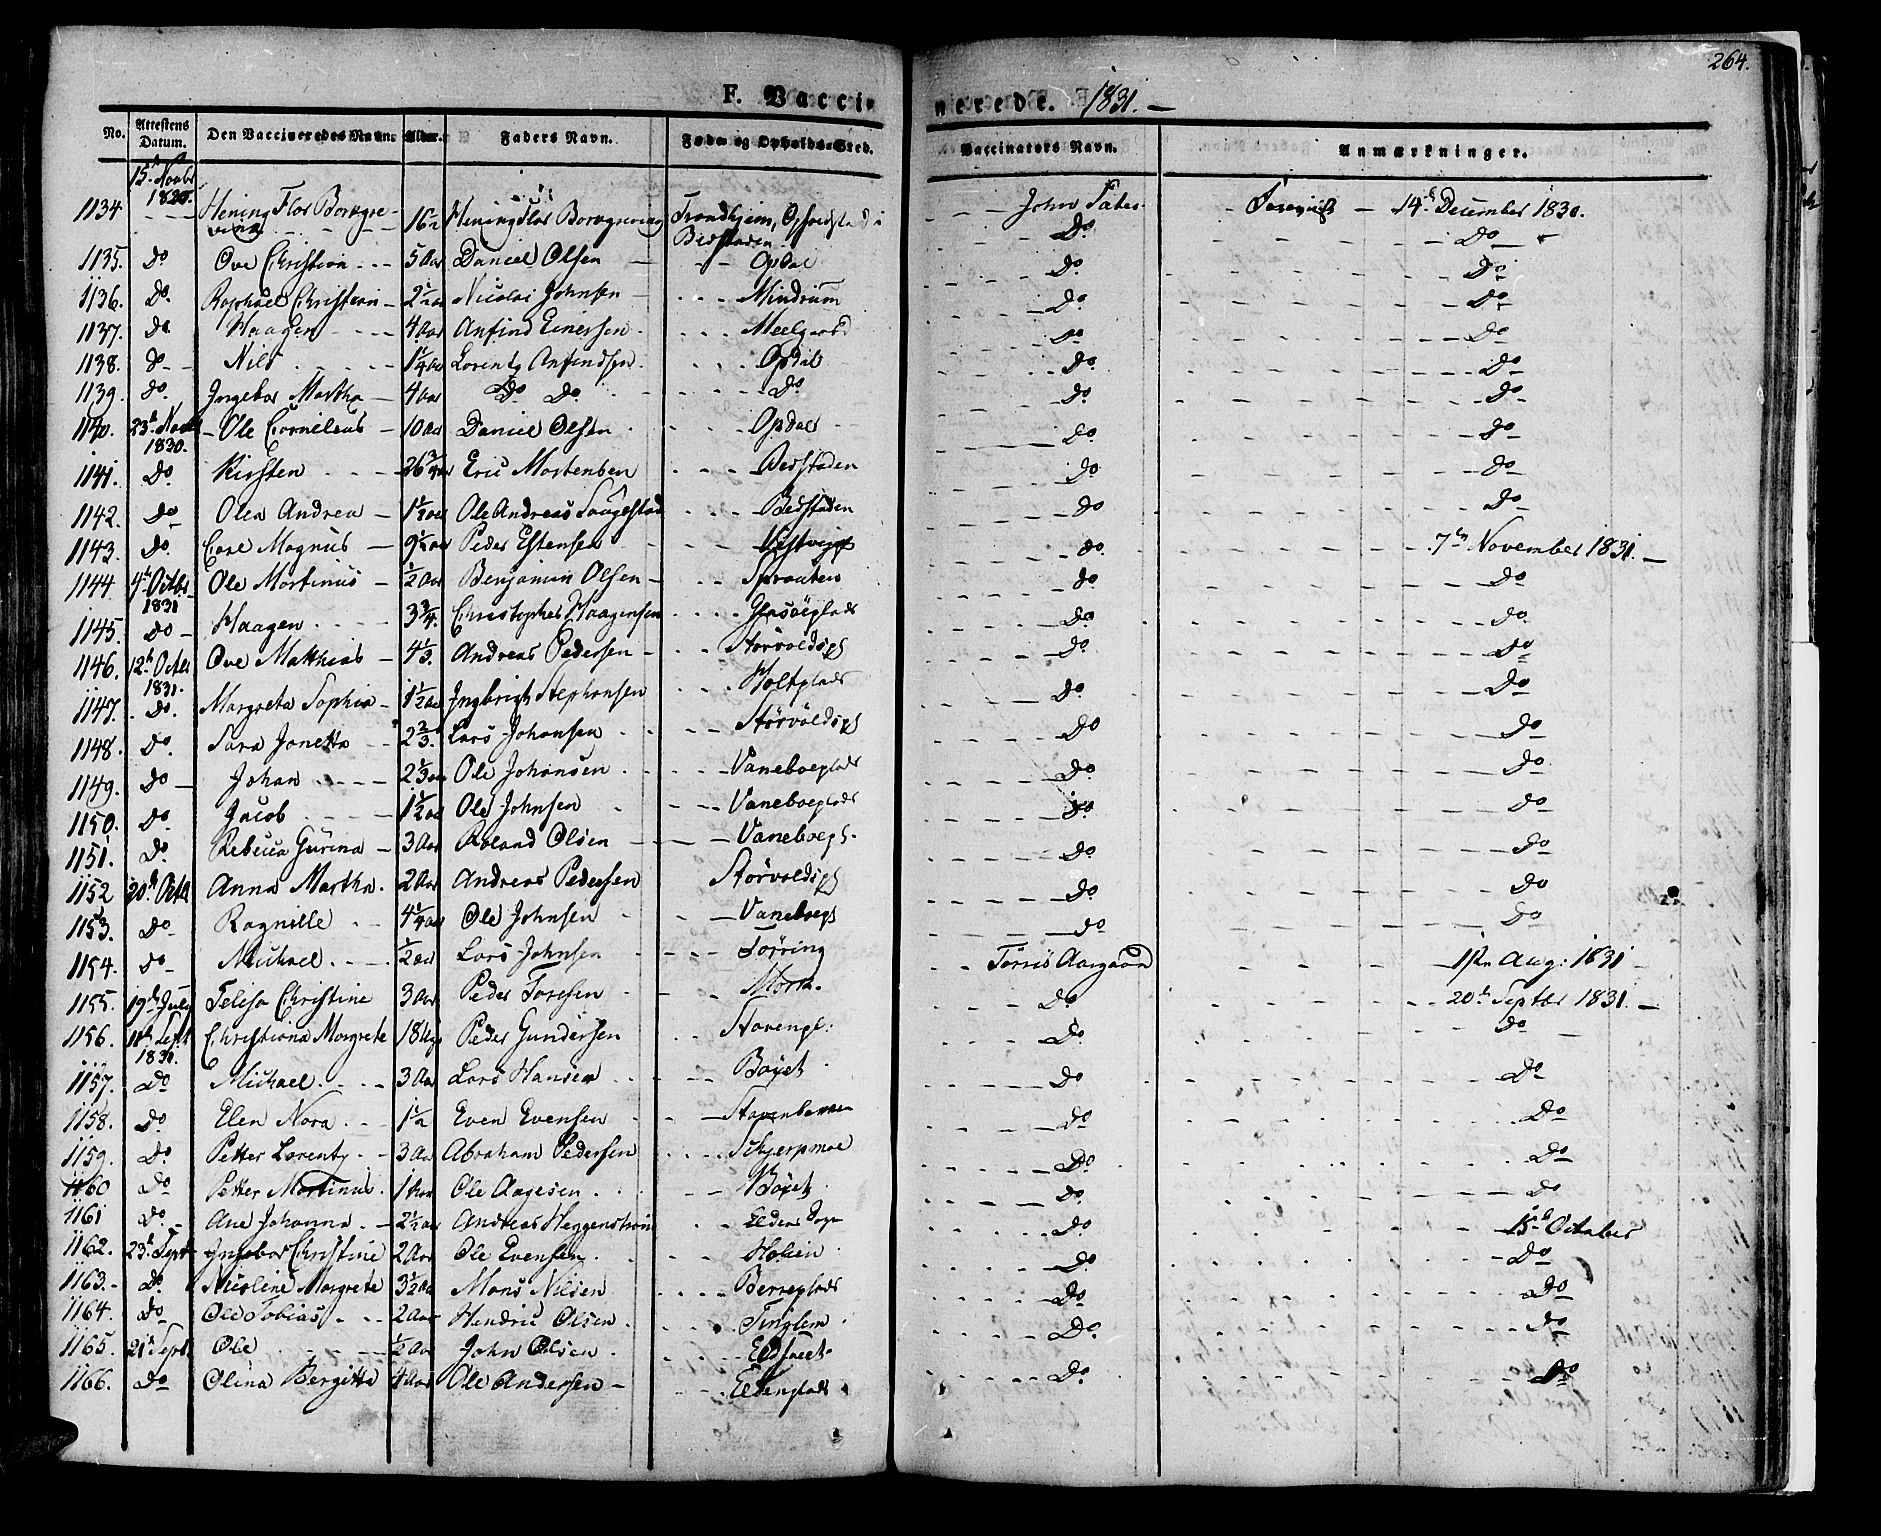 264.
F. Vaccinerede. 1831. —
No. Attestens Datum. Den Vaccineredes Navn. Alder. Faders Navn. Føde- og Opholds-Sted. Vaccinators Navn. Anmærkninger.
15. Novbr 1830.
1134 Hening Flor Borgrevinck 16 Hening Flor Trondhjem, Opholdsted i Bedstaden John — 14de December 1830.
1135. Do Ove Christian 5 Aar Daniel Olsen Opdal Do Do
1136. Do Raphael Christian 2½ Aar Nicolai Johnsen Mindrum Do Do
1137. Do Haagen 4 Aar Anfind Einersen Meelgaard Do Do
1138. Do Nils 1¼ Aar Lorentz Anfindsen Opdal Do Do
1139. Do Ingebor Martha 4 Aar Do Do Do Do Do
1140. 23de Novbr 1830. Ole Cornelius 10 Aar Daniel Olsen Opdal Do Do
1141. Do Kirsten 26¾ Aar Eric Mortensen Bedstaden Do Do
1142. Do Olea Andrea 1½ Aar Ole Andreas Bedstaden Do Do
1143. Do Carl Magnus 9½ Aar Peder Estensen Do 7de November 1831. —
1144 4de Octbr 1831 Ole Mortinus ½ Aar Benjamin Olsen Spraaten Do Do
1145. Do Haagen 3¾ Christopher Haagensen Do Do
1146. 12te Octbr 1831. Ove Matthias 4⅓ Andreas Pedersen Størvoldspl Do Do
1147. Do Margreta Sophia 1½ Aar Ingbrigt Stephansen Holtplads Do Do
1148. Do Sara Janetta 2⅔ Lars Johansen Størvoldspl Do Do
1149. Do Johan 2⅓ Aar Ole Johansen Vaneboeplads Do Do
1150. Do Jacob 1½ Aar Ole Johnsen Vaneboeplads Do Do
1151. Do Rebecca Gurina 3 Aar Roland Olsen Vaneboepl. Do Do
1152 20de Octbr Anna Martha 2 Aar Andreas Pedersen Størvoldspl Do Do
1153. Do Ragnille 4¼ Aar Ole Johnsen Vaneboepl Do Do
1154. Do Michael ½ Aar Lars Johnsen Tørring Tørris Aargaard 1ste Aug: 1831
1155. 19de July Telisa Christine 3 Aar Peder Toresen Morka Do 20de Septbr 1831. —
1156. 11te Sept 1831. Christiana Margrete 18 Ugr Peder Gundersen Stavengl: Do Do
1157. Do Michael 3 Aar Lars Hansen Bøyet Do Do
1158. Do Elen Nora 1½ Even Evensen Do Do
1159. Do Petter Lorentz 3 Aar Abraham Pedersen Schjerpmoe Do Do
1160 Do Petter Martinus 1 Aar Ole Aagesen Bøyet Do Do
1161 Do Ane Johanna 2½ Aar Andreas Heggenstrøm Do 15de October
1162. 23de Sept Ingebor Christine 2 Aar Ole Evensen Holien Do Do
1163. Do Nicoline Margrete 3½ Aar Mons Nilsen Berreplads Do Do
1164. Do Ole Tobias 2 Aar Hendric Olsen Tinglem Do Do
1165. 21de Sept. Ole ½ Aar John Olsen Do
1166. Do Olina Bergitta 4 Aar Ole Andersen Eldenplads Do Do